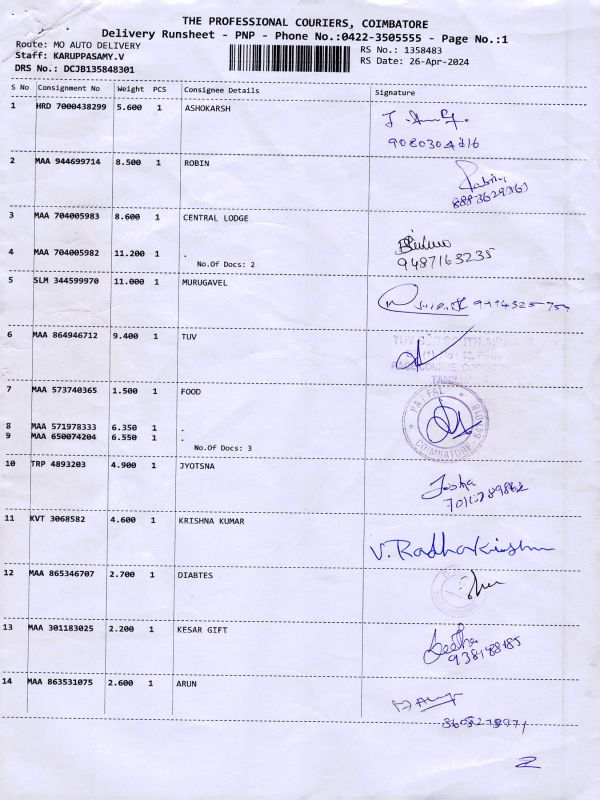 THE PROFESSIONAL COURIERS, COIMBATORE
Delivery Runsheet - PNP - Phone No.:0422-3505555 - Page No.:1
Route: MO AUTO DELIVERY RS No.: 1358483
Staff: KARUPPASAMY.V RS Date: 26-Apr-2024
DRS No.: DCJB135848301
S No Consignment No Weight PCS Consignee Details Signature
1 HRD 7000438299 5.600 1 ASHOKARSH
9080304216
2 MAA 944699714 8.500 1 ROBIN
8883629363
3 MAA 704005983 8.600 1 CENTRAL LODGE
9487163235
4 MAA 704005982 11.200 1 .
No.Of Docs: 2
5 SLM 344599970 11.000 1 MURUGAVEL
6 MAA 864946712 9.400 1 TUV
7 MAA 573740365 1.500 1 FOOD
8 MAA 571978333 6.350 1 .
9 MAA 650074204 6.550 1 .
No.Of Docs: 3
COIMBATORE
10 TRP 4893203 4.900 1 JYOTSNA
11 KVT 3068582 4.600 1 KRISHNA KUMAR
V. Radhakrishnan
12 MAA 865346707 2.700 1 DIABTES
13 MAA 301183025 2.200 1 KESAR GIFT
Geetha
14 MAA 863531075 2.600 1 ARUN
2